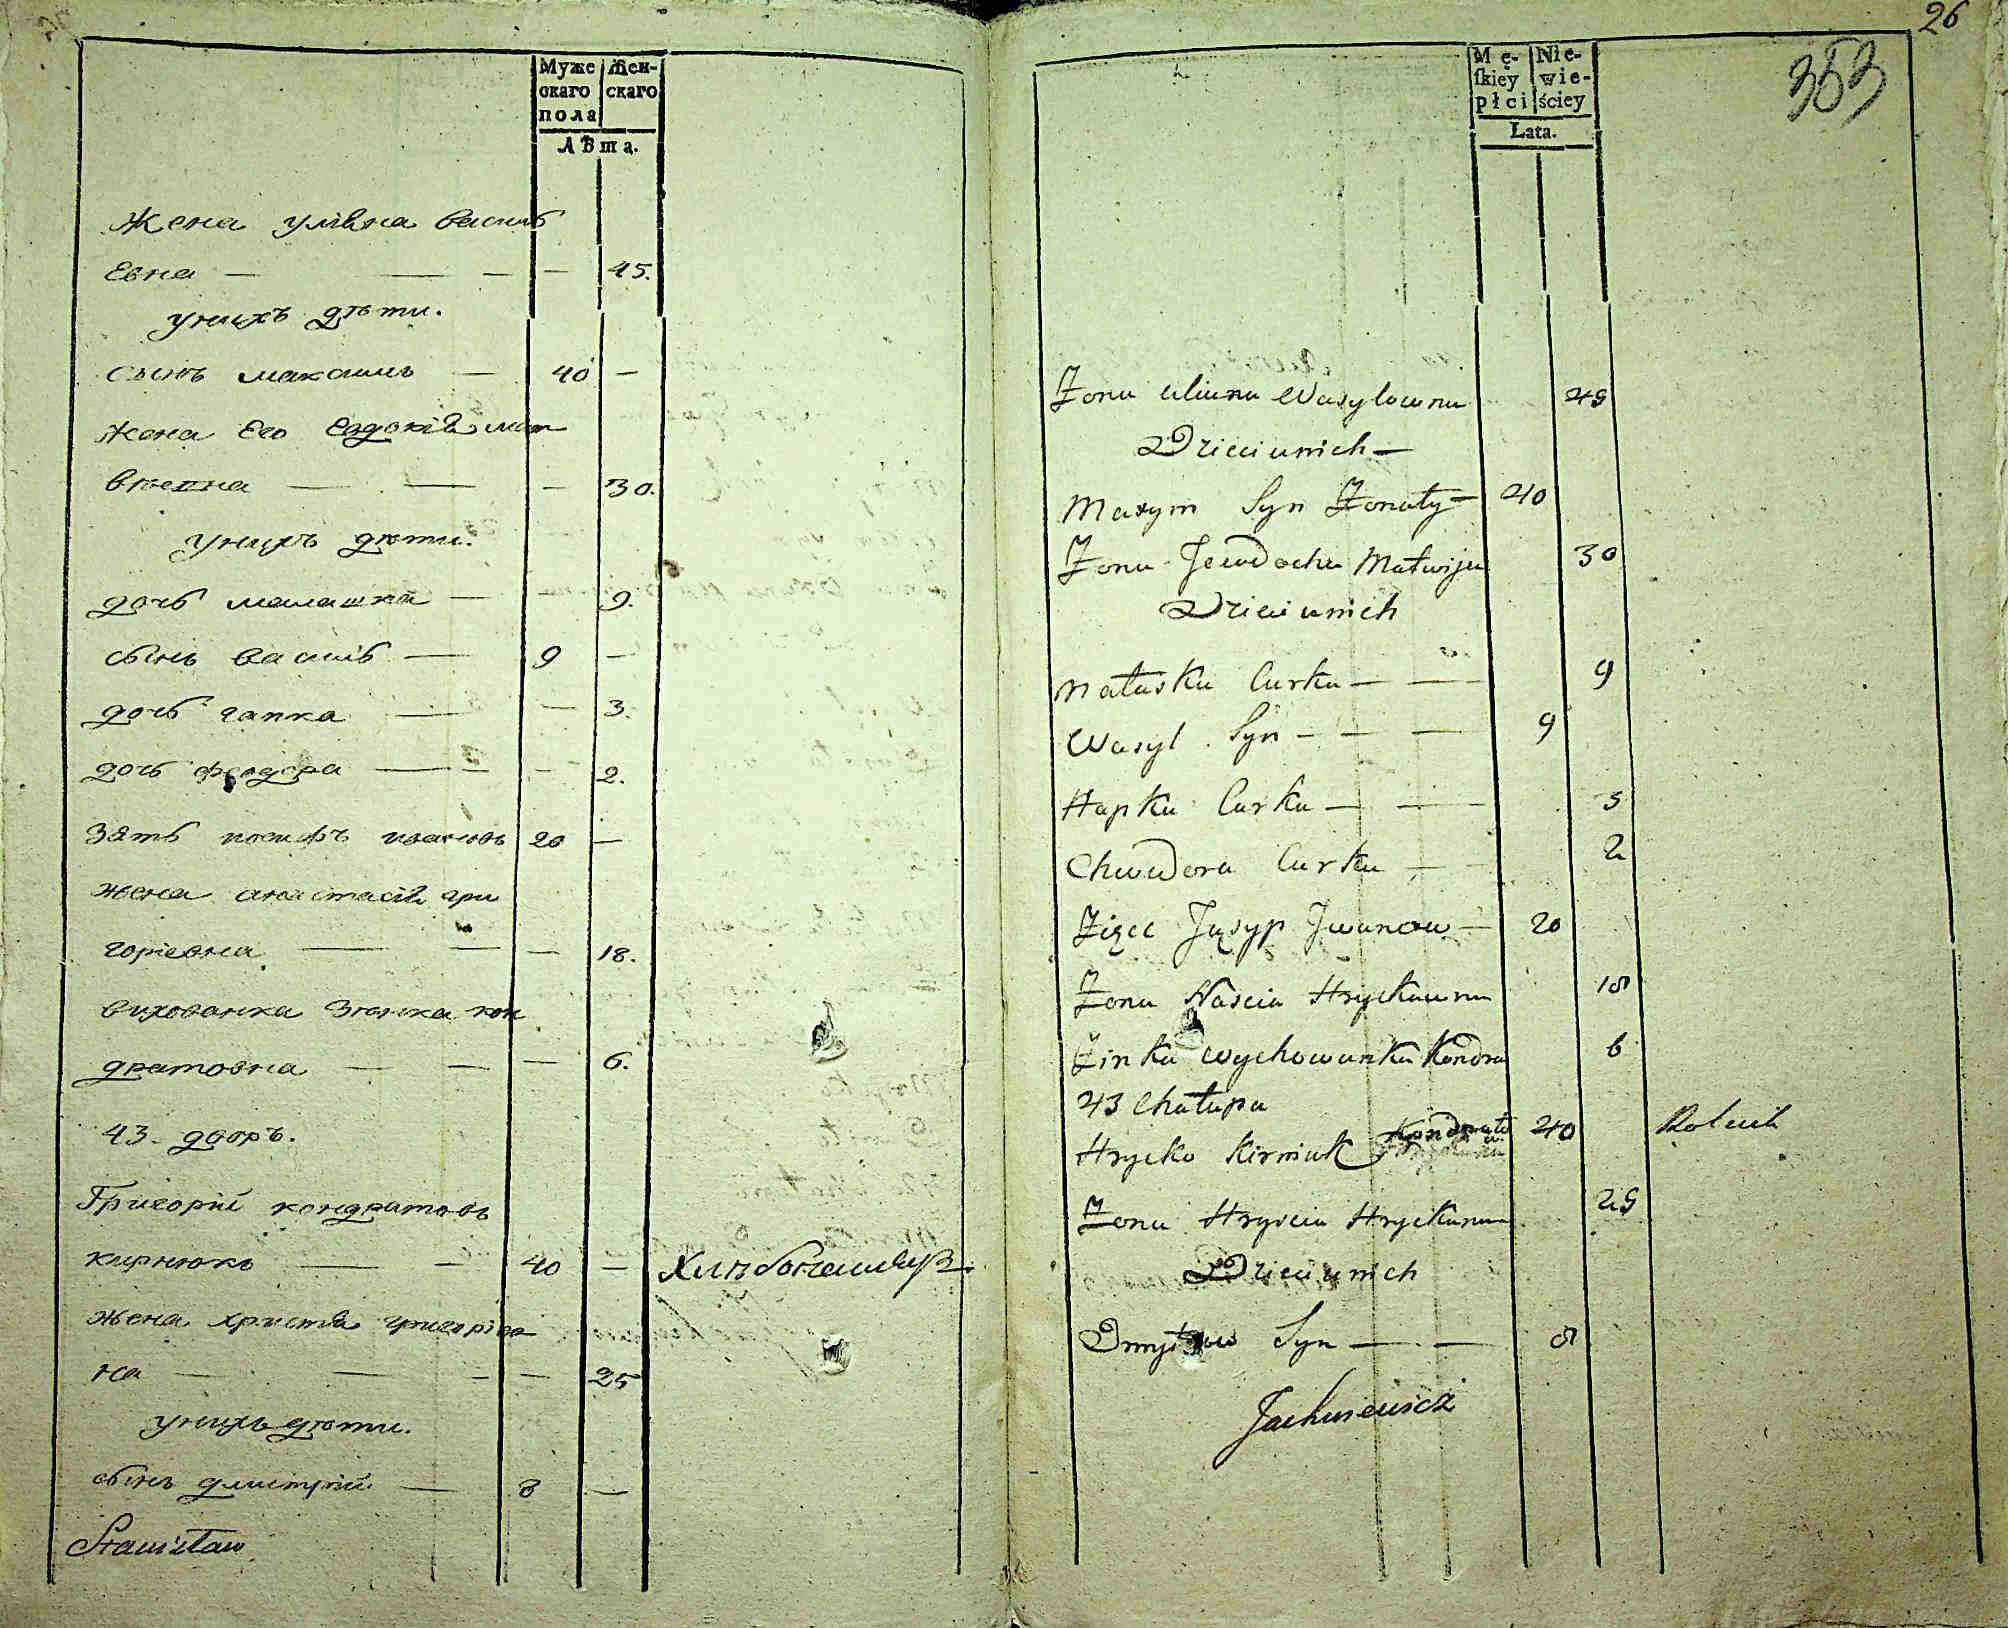 Муже
скаго
пола
Жен-
скаго
Лѣта.
Жена улiяна василь
Евна — — — — 45.
унихъ дѣти.
сынъ максимъ — 40 —
жена Его Евдокiя мат
вѣевна — — — 30.
унихъ дѣти.
дочь малашка — — 9.
сынъ василь — 9 —
дочь гапка — — 3.
дочь феодора — — — 2.
Зять иосифъ ивановъ 20 —
жена анастасiя гри
горiевна — — — 18.
вихованка Зѣнька кон
дратовна — — — 6.
43. дворъ.
Григорiй кондратовъ
кирнюкъ — — 40 — Хлѣбопашецъ
жена христя григорiев
на — — — — 25
унихъ дѣти.
сынъ дмитрiй — 8 —
Stanisław
26
353
Mę-
skiey
płci
Nie-
wie-
ściey
Lata.
Żona Uliana Wasylowna 45
Dzieci unich —
Maxym Syn Żonaty — 40
Żona Jewdocha Matwija 30
Dzieci unich
Małaska Curka — — — 9
Wasyl Syn — — — 9
Hapka Curka — — 3
Chwedora Curka — — 2
Zięć Jusyp Iwanow — 20
Żona Nascia Hryckowna 18
Zinka wychowanka Kondra 6
43 Chałupa
Hrycko Kirniuk Kondratow 40 Rolnik
Żona Hryscia Hryckowna 25
Dzieci unich
Dmytro Syn — — 8
Jachniewicz